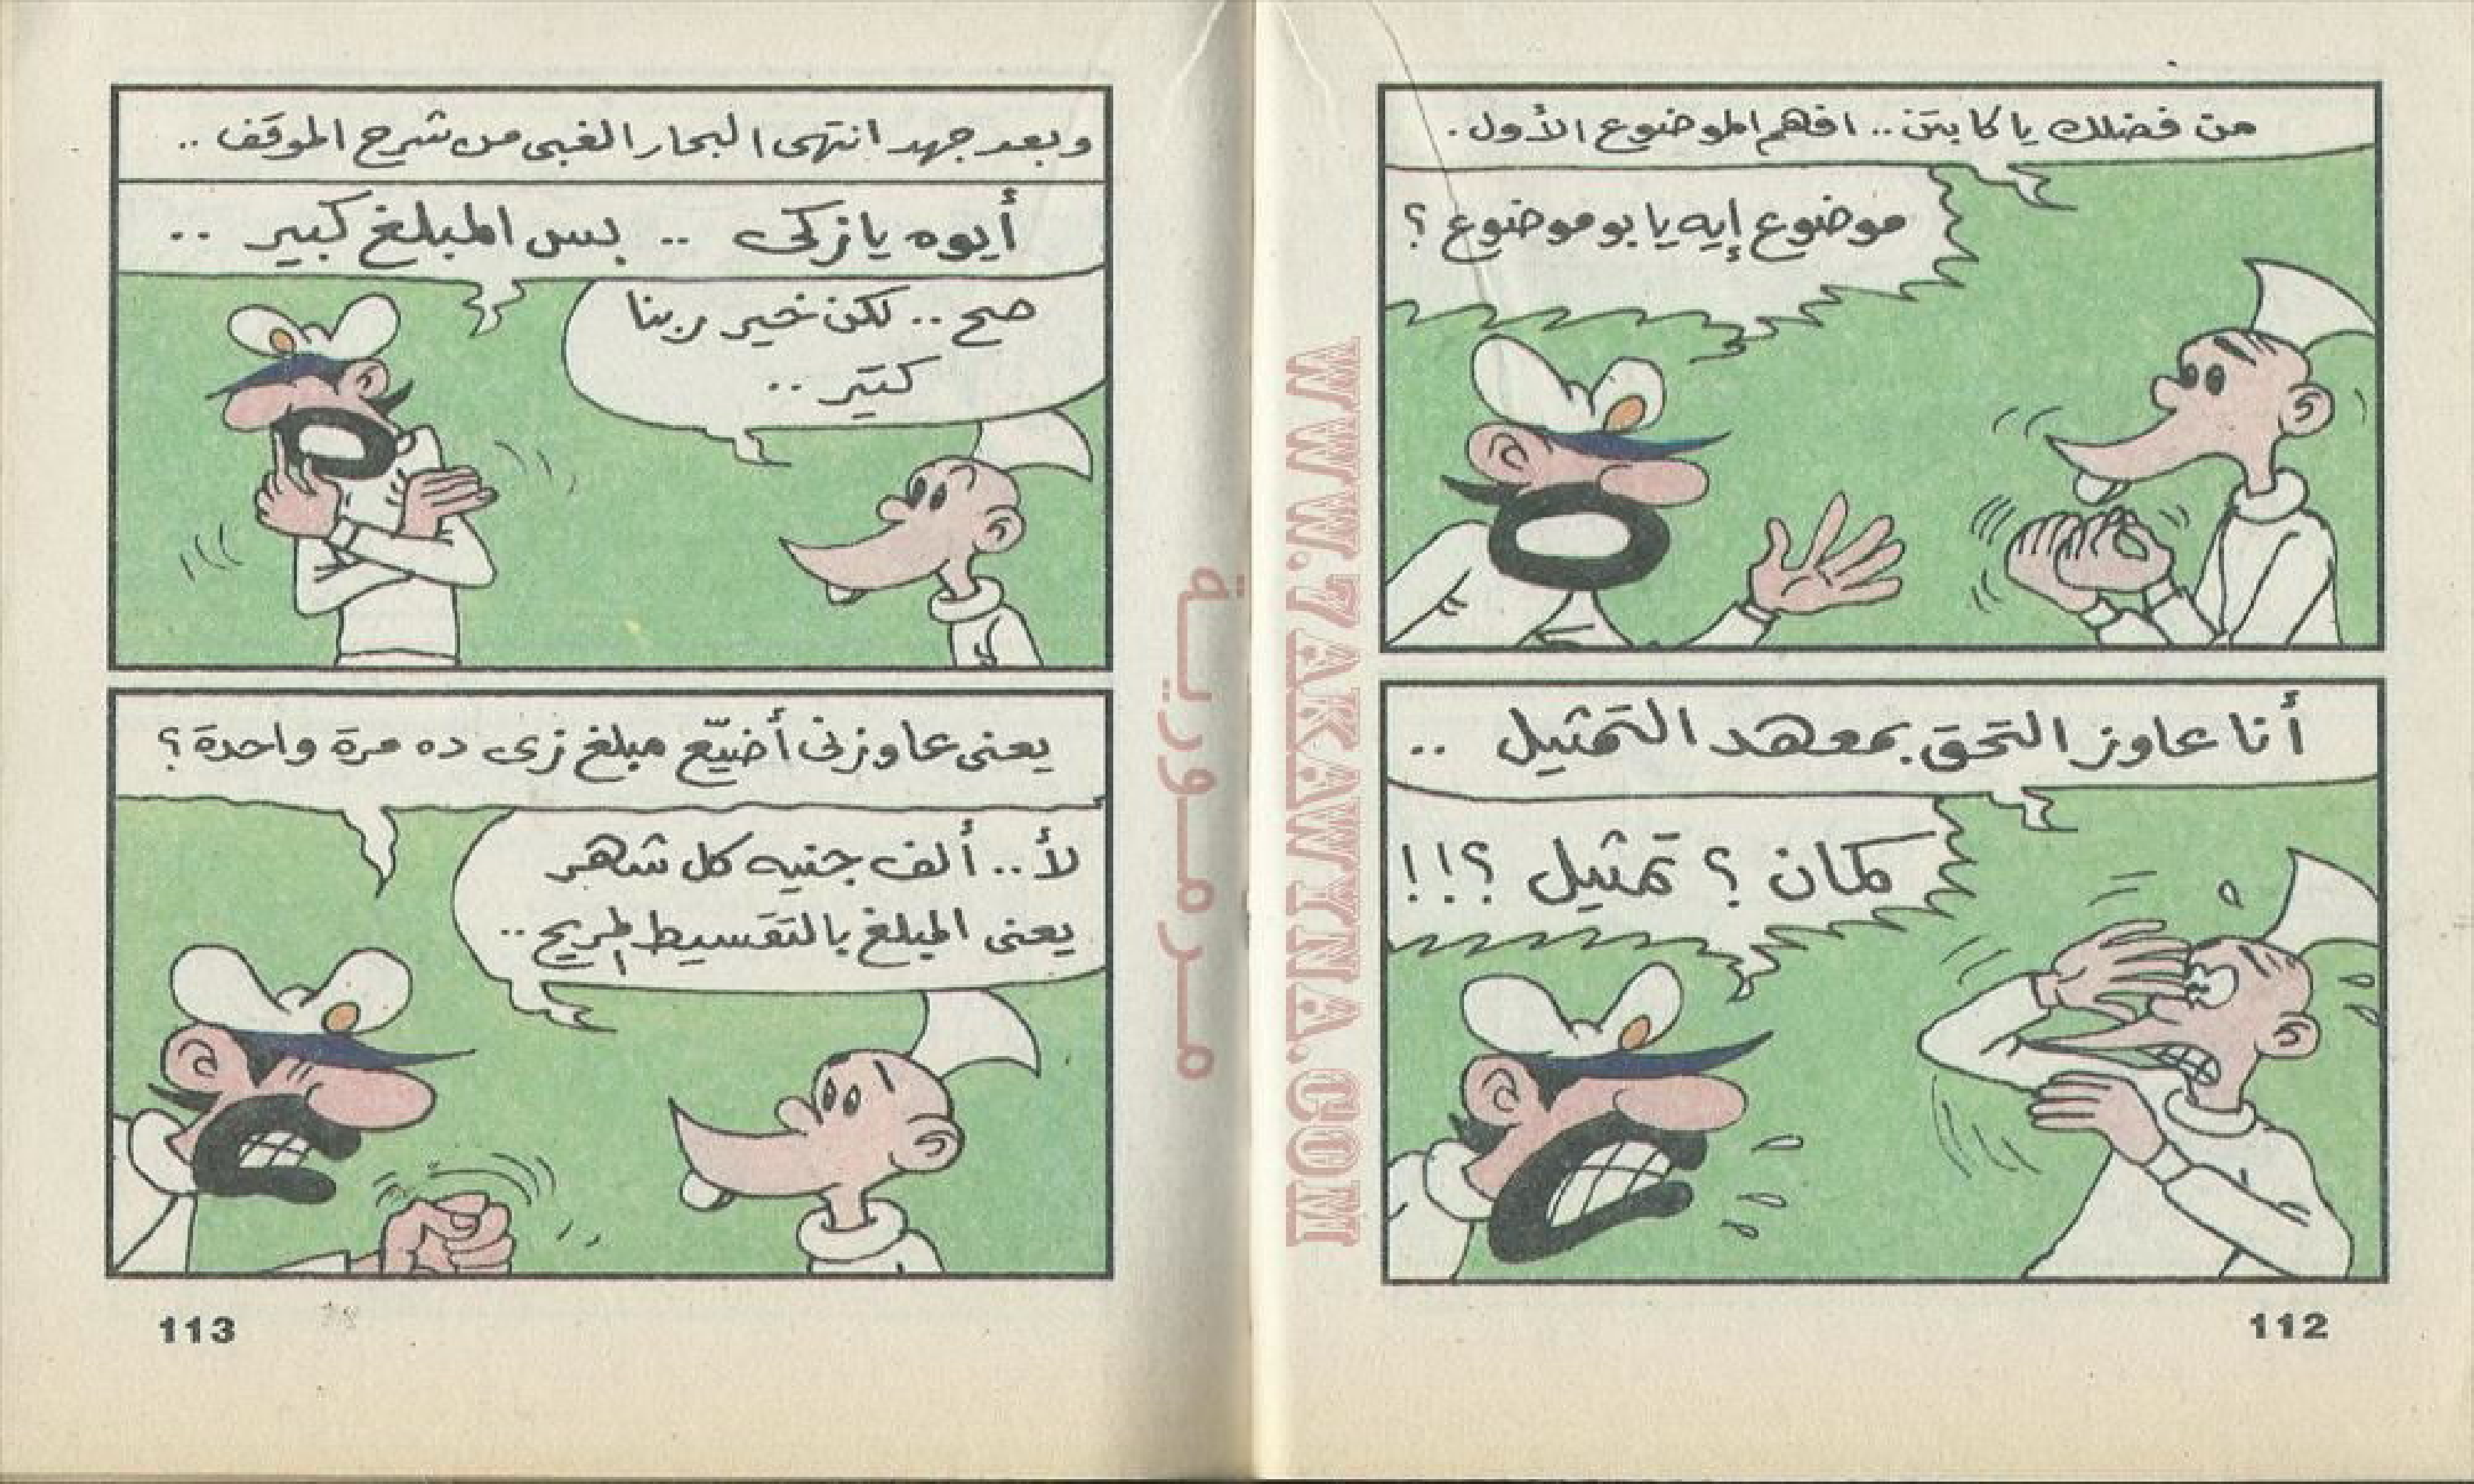 من فضلك يا كابتن .. افهم الموضوع الأول .
موضوع إيه يا بو موضوع ؟
أنا عاوز التحق بمعهد التمثيل ..
كمان ؟ تمثيل ؟!!
112
وبعد جهد انتهى البحار الغبى من شرح الموقف ..
أيوه يا زكى .. بس المبلغ كبير ..
صح .. لكن خير ربنا
كتير ..
يعنى عاوزنى أضيّع مبلغ زى ده مرة واحدة ؟
لأ .. ألف جنيه كل شهر
يعنى المبلغ بالتقسيط المريح ..
113
مرمورية
WWW.7AKAWYINA.COM